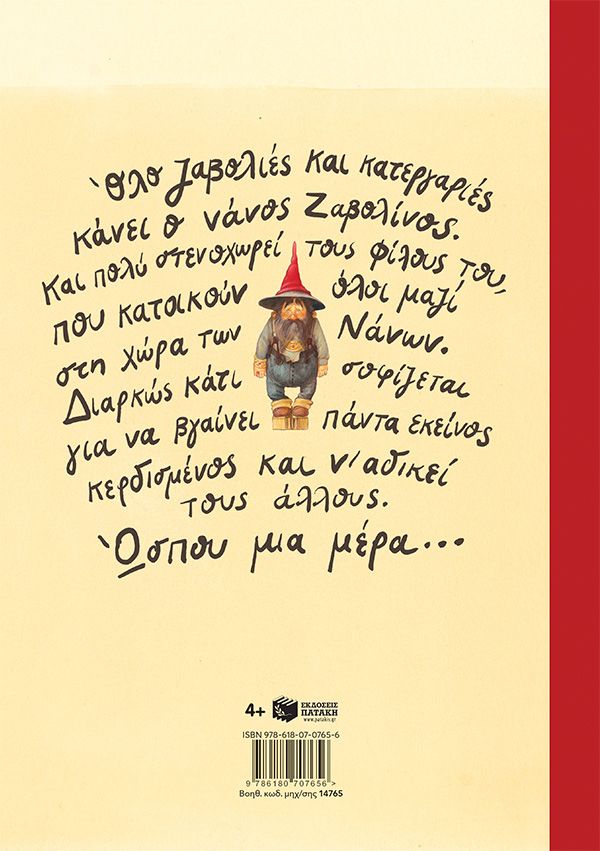 Όλο ζαβολιές και κατεργαριές
κάνει ο νάνος Ζαβολίνος.
Και πολύ στενοχωρεί τους φίλους του,
που κατοικούν όλοι μαζί
στη χώρα των Νάνων.
Διαρκώς κάτι σοφίζεται
για να βγαίνει πάντα εκείνος
κερδισμένος και ν' αδικεί
τους άλλους.
Ώσπου μια μέρα...
4+ ΕΚΔΟΣΕΙΣ
ΠΑΤΑΚΗ
www.patakis.gr
ISBN 978-618-07-0765-6
9 786180 707656 >
Βοηθ. κωδ. μηχ/σης 14765